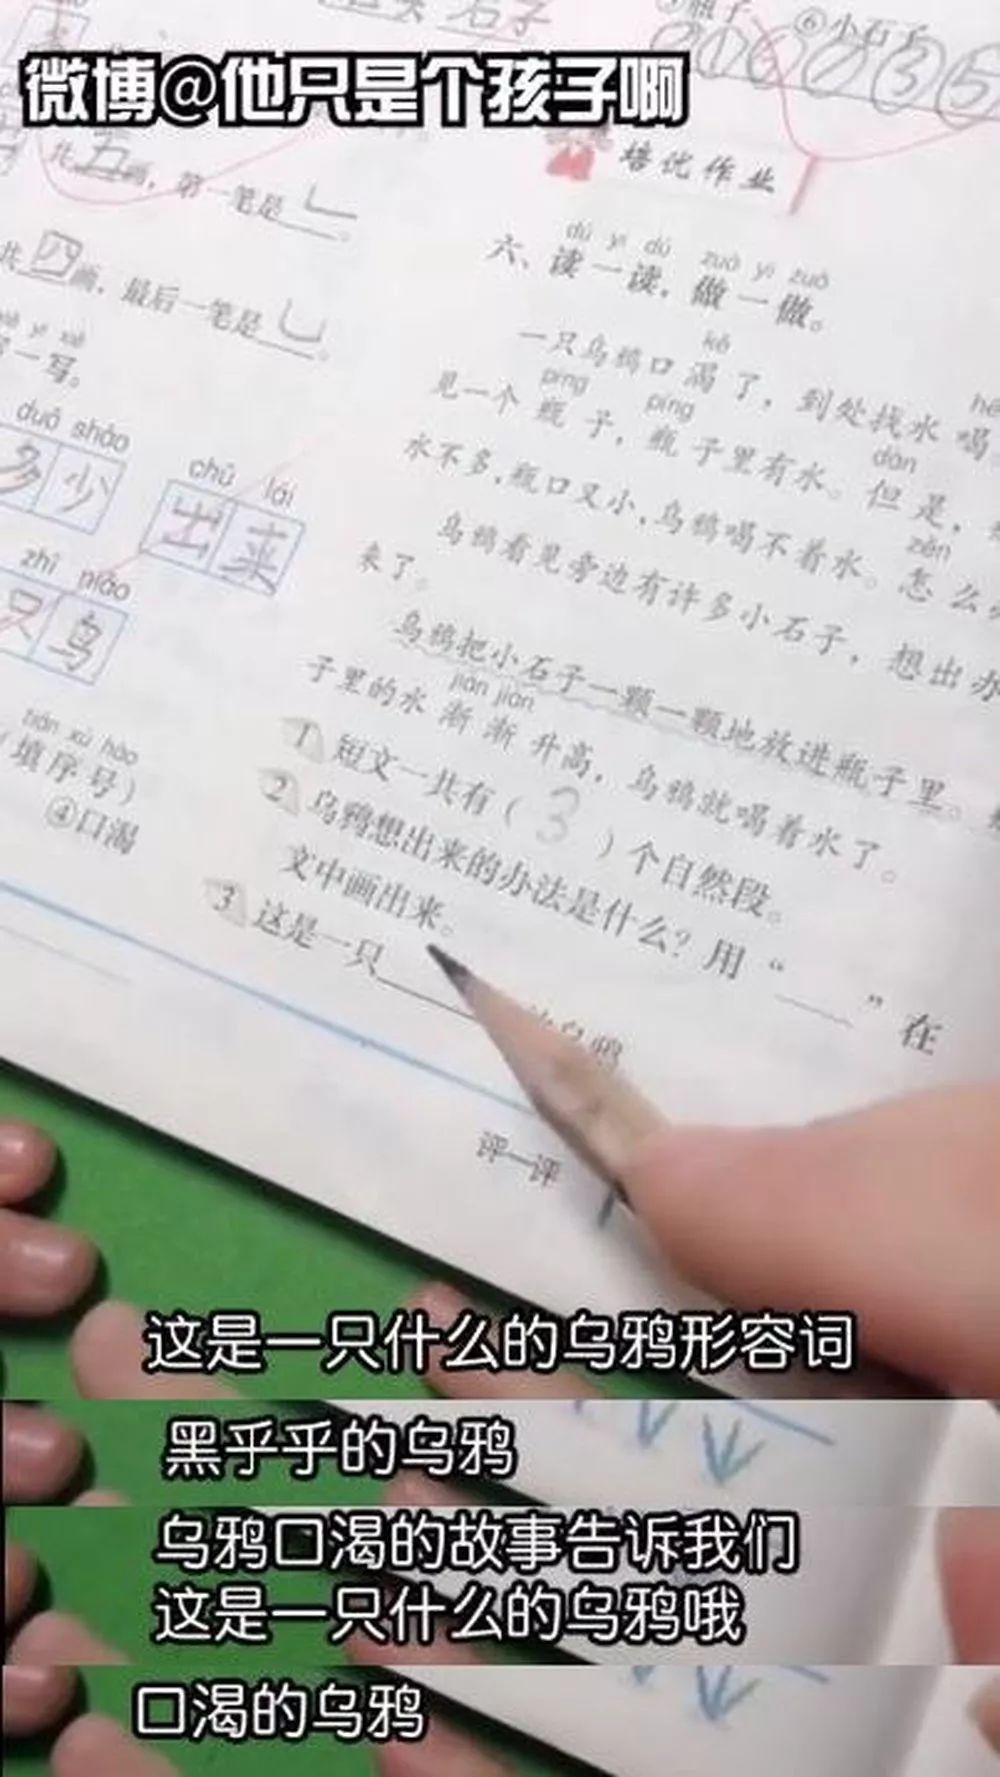 微博@他只是个孩子啊
⑥小石子
培优作业
共五画，第一笔是
dú yì dú zuò yì zuò
六、读一读，做一做。
共四画，最后一笔是
kě
一只乌鸦口渴了，到处找水喝
píng píng
见一个瓶子，瓶子里有水。但是，
dàn
水不多，瓶口又小，乌鸦喝不着水。怎么
zěn
乌鸦看见旁边有许多小石子，想出办
来了。
乌鸦把小石子一颗一颗地放进瓶子里。
jiàn jiàn
子里的水渐渐升高，乌鸦就喝着水了。
1 短文一共有（3）个自然段。
2 乌鸦想出来的办法是什么？用“——”在
文中画出来。
3 这是一只
评一评
一写。
duō shǎo
多少
chū lái
出来
zhī niǎo
只鸟
tián xù hào
（填序号）
④口渴
这是一只什么的乌鸦形容词
黑乎乎的乌鸦
乌鸦口渴的故事告诉我们
这是一只什么的乌鸦哦
口渴的乌鸦